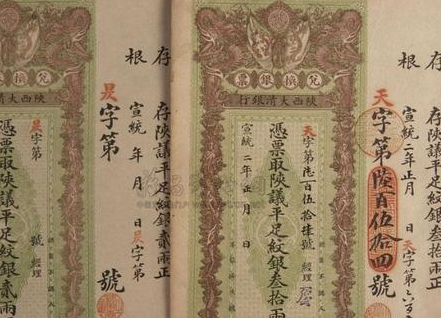 存根
存陝議平足紋銀叁拾兩
宣統二年正月 日 天字第六百
天字第陸百伍拾四號
兌換銀票
陝西大清銀行
天字第陸百伍拾肆號 經理
憑票取陝議平足紋銀叁拾兩
宣統二年正月 日
存根
存陝議平足紋銀貳兩正
宣統 年 月 日 昃字第
昃字第 號
兌換銀票
陝西大清
昃字第 號 經理
憑票取陝議平足紋銀貳兩